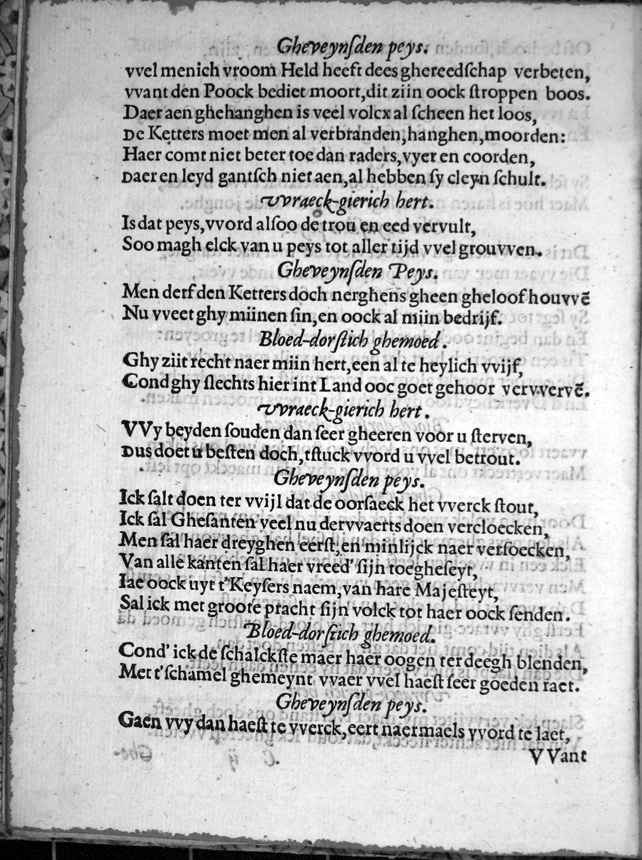 Gheveynsden peys.
vvel menich vroom Held heeft dees ghereedschap verbeten,
vvant den Poock bediet moort, dit zijn oock stroppen boos.
Daer aen ghehanghen is veel volcx al scheen het loos,
De Ketters moet men al verbranden, hanghen, moorden:
Haer comt niet beter toe dan raders, vyer en coorden,
Daer en leyd gantsch niet aen, al hebben sy cleyn schult.
vvraeck-gierich hert.
Is dat peys, vvord alsoo de trou en eed vervult,
Soo magh elck van u peys tot aller tijd vvel grouvven.
Gheveynsden Peys.
Men derf den Ketters doch nerghens gheen gheloof houvvē
Nu vveet ghy mijnen sin, en oock al mijn bedrijf.
Bloed-dorstich ghemoed.
Ghy zijt recht naer mijn hert, een al te heylich vvijf,
Cond ghy slechts hier int Land ooc goet gehoor vervvervē.
vvraeck-gierich hert.
VVy beyden souden dan seer gheeren voor u sterven,
Dus doet u besten doch, tstuck vvord u vvel betrout.
Gheveynsden peys.
Ick salt doen ter vvijl dat de oorsaeck het vverck stout,
Ick sal Ghesanten veel nu dervvaerts doen vercloecken,
Men sal haer dreyghen eerst, en minlijck naer versoecken,
Van alle kanten sal haer vreed' sijn toegheseyt,
Iae oock uyt t'Keysers naem, van hare Majesteyt,
Sal ick met groote pracht sijn volck tot haer oock senden.
Bloed-dorstich ghemoed.
Cond' ick de schalckste maer haer oogen ter deegh blenden,
Met t'schamel ghemeynt vvaer vvel haest seer goeden raet.
Gheveynsden peys.
Gaen vvy dan haest te vverck, eert naermaels vvord te laet,
VVant